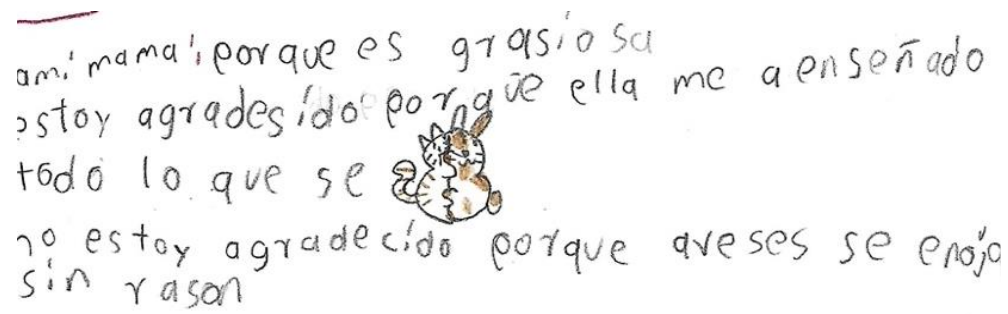 ami mamá, porque es grasiosa
estoy agradesido porque ella me a enseñado
todo lo que se
no estoy agradecido porque aveses se enoja
sin rason